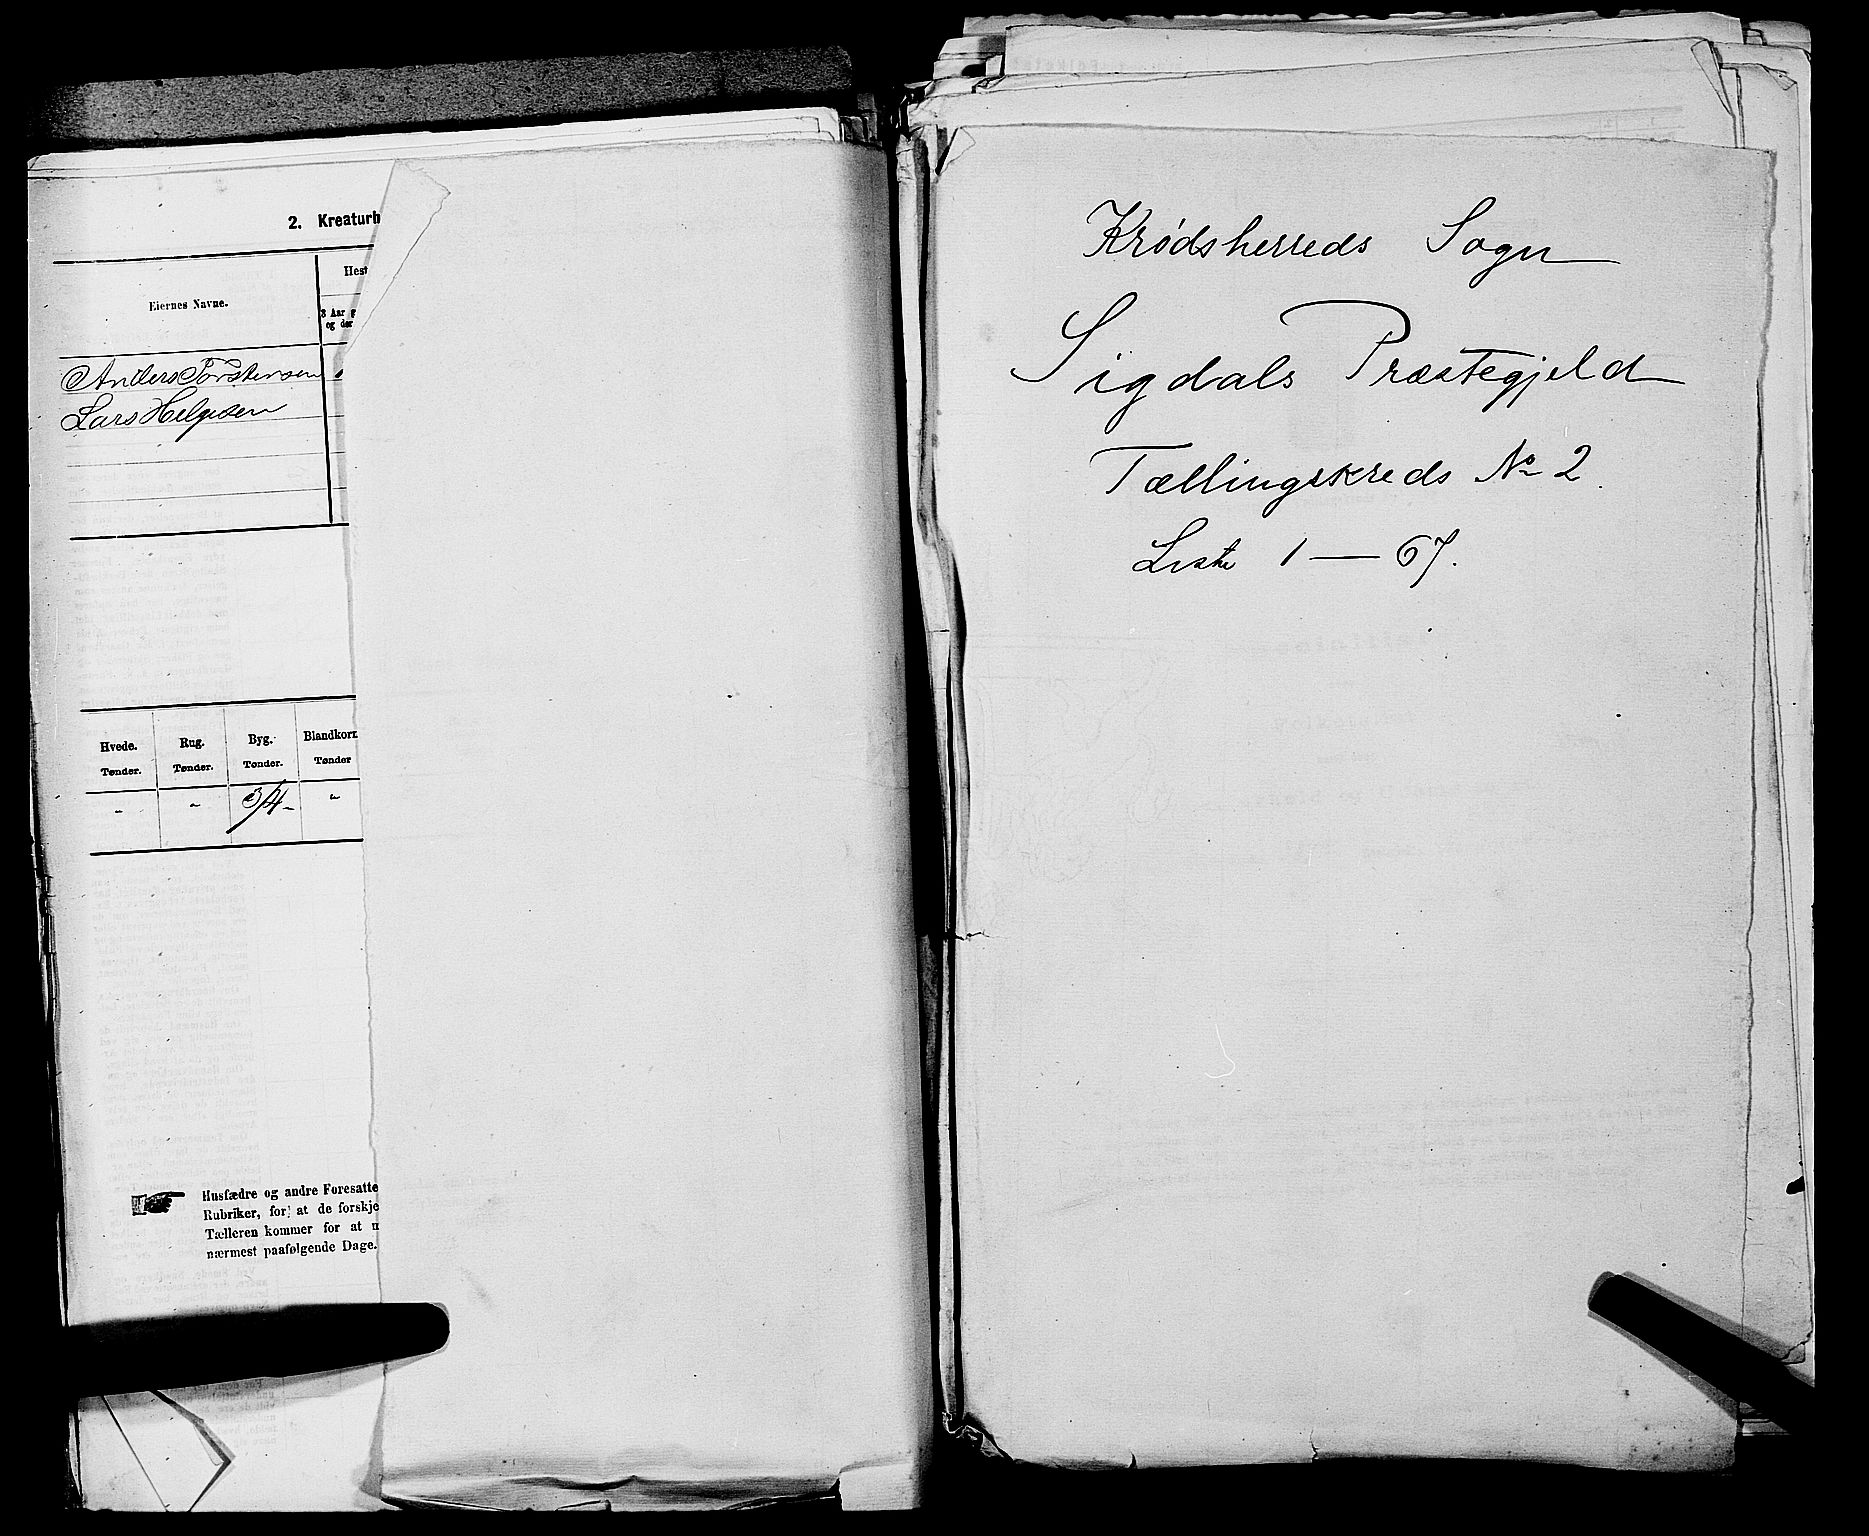 2. Kreaturh
Eiernes Navne.
Hest
3 Aar g
og der
Anders Torstensen
Lars Helgesen
Hvede. Rug. Byg. Blandkorn
Tønder. Tønder. Tønder. Tønder
" " 3/4 "
Husfædre og andre Foresatte
Rubriker, for at de forskje
Tælleren kommer for at
nærmest paafølgende Dage.
Krødsherreds Sogn
Sigdals Præstegjeld
Tællingskreds No 2.
Liste 1 — 67.